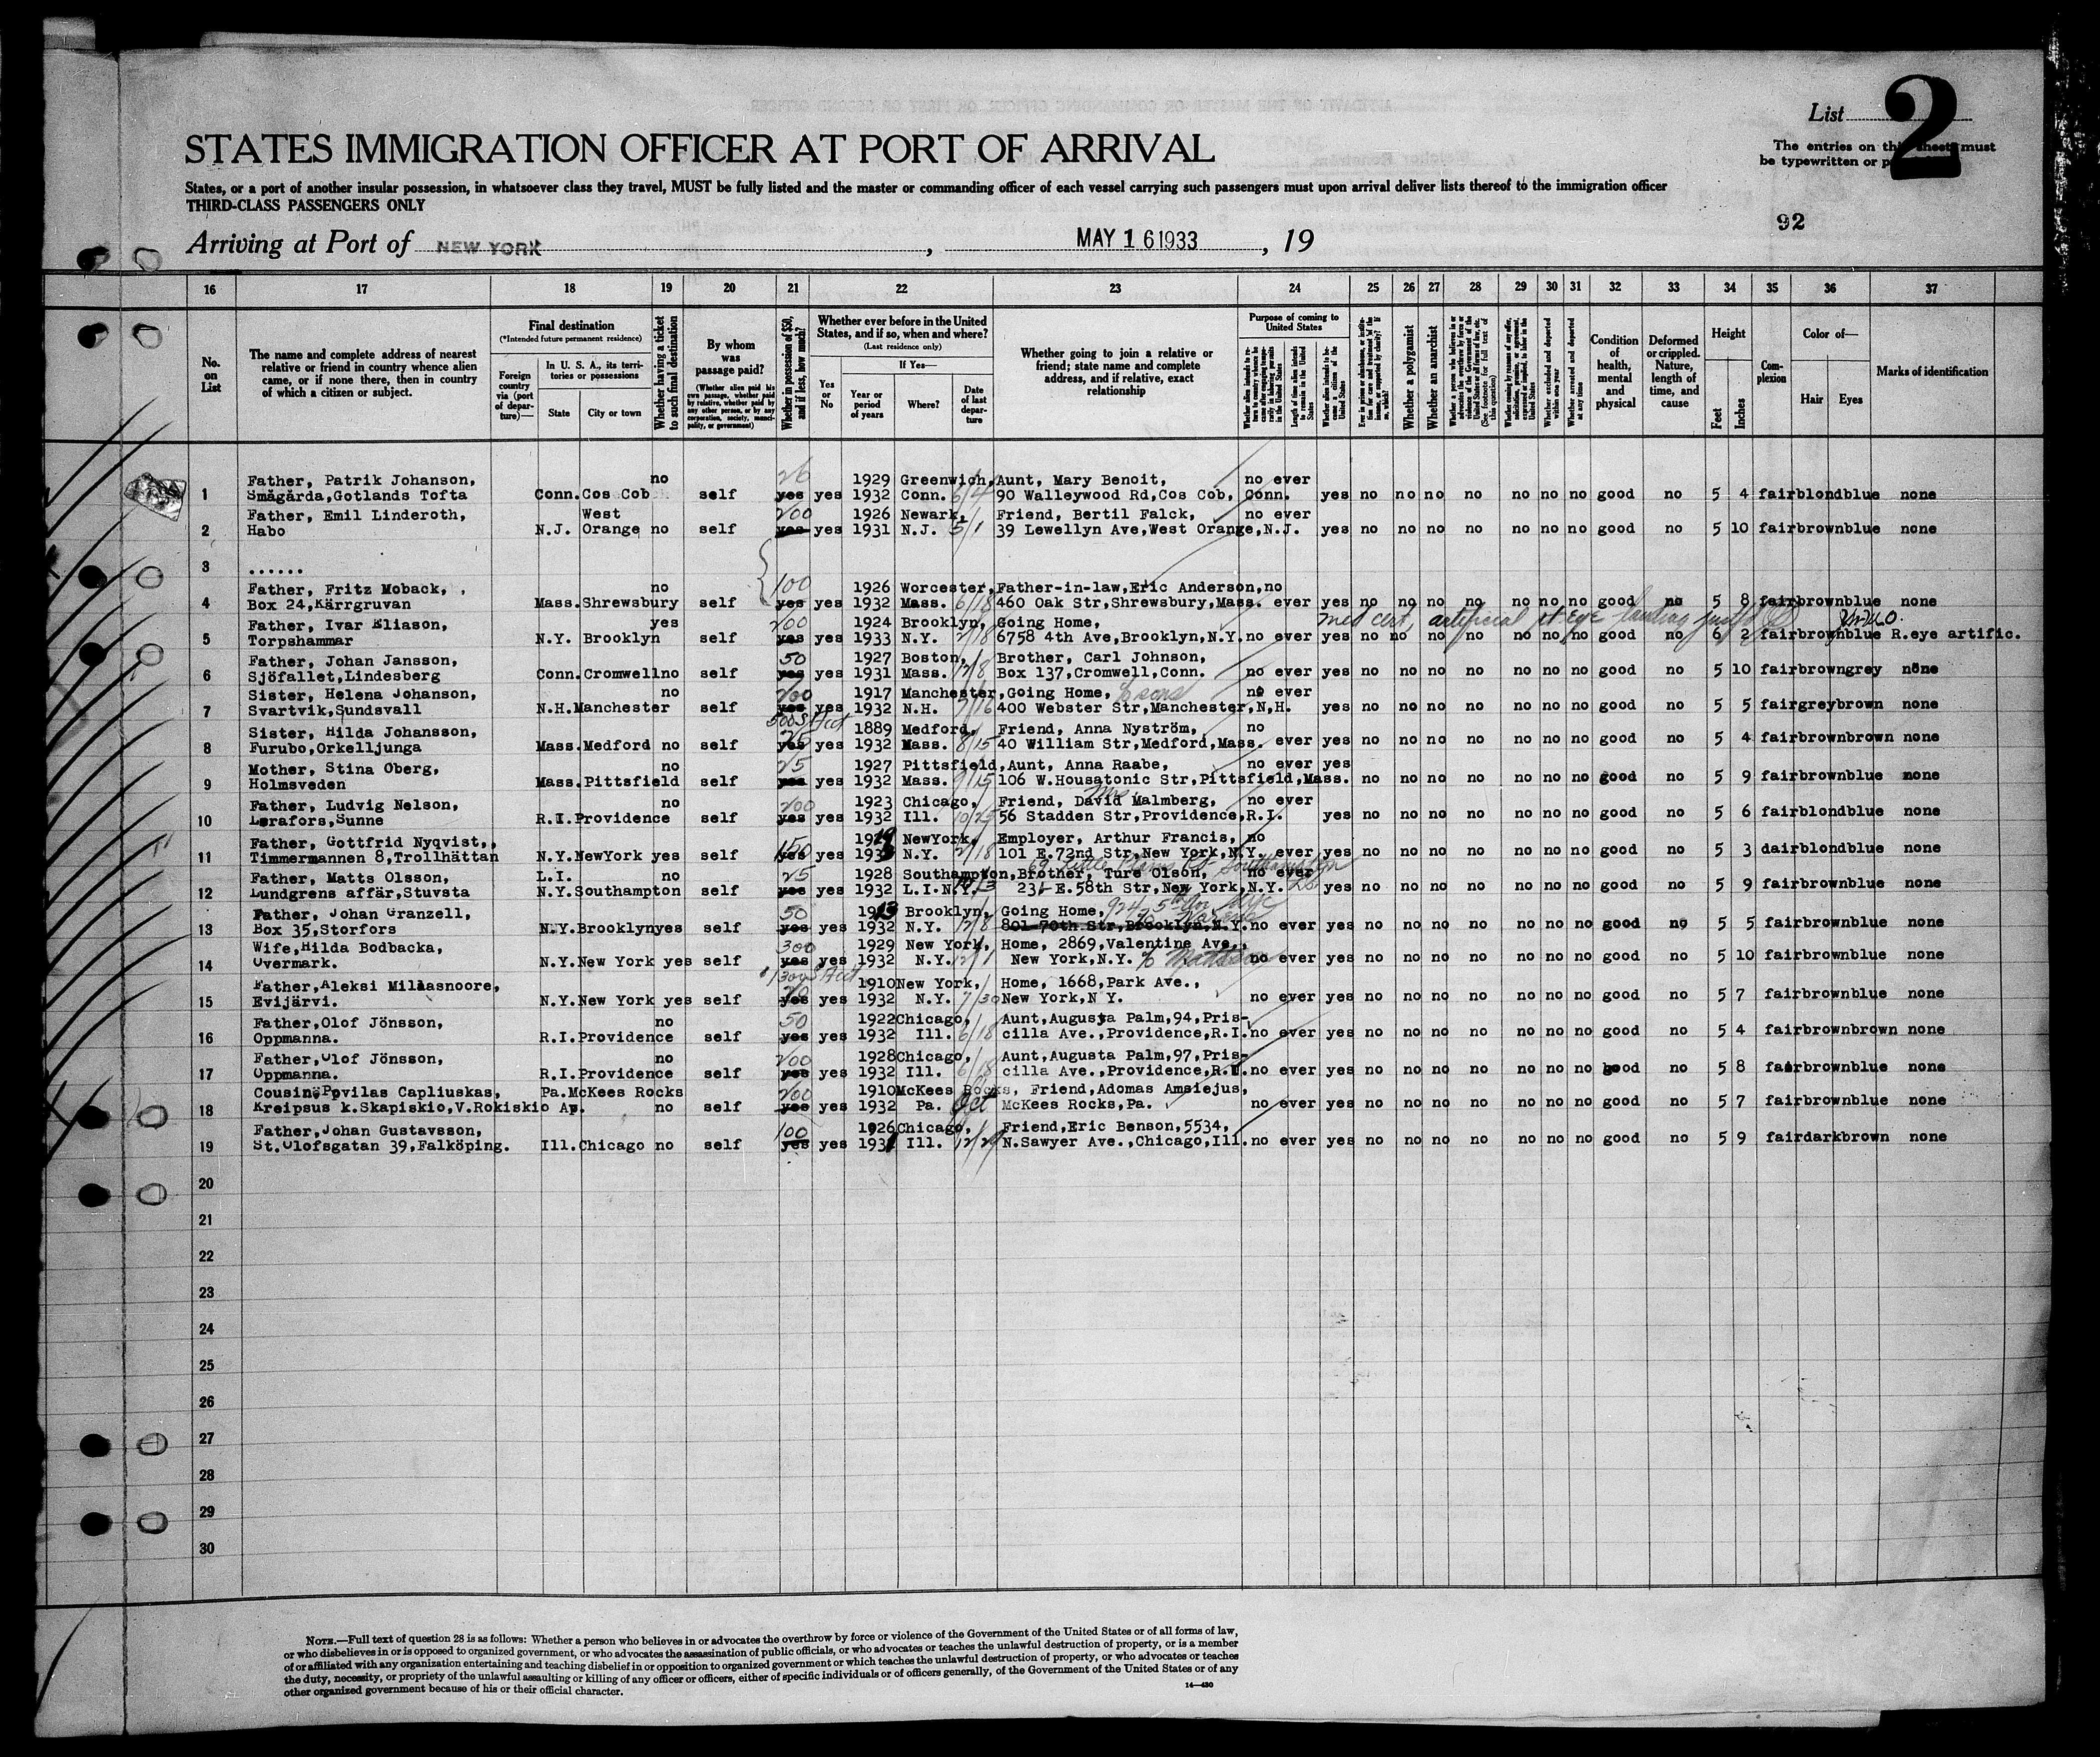 List 2
STATES IMMIGRATION OFFICER AT PORT OF ARRIVAL
The entries on this sheet must
be typewritten or
States, or a port of another insular possession, in whatsoever class they travel, MUST be fully listed and the master or commanding officer of each vessel carrying such passengers must upon arrival deliver lists thereof to the immigration officer
THIRD-CLASS PASSENGERS ONLY
92
Arriving at Port of NEW YORK, MAY 16 1933, 19
16 17 18 19 20 21 22 23 24 25 26 27 28 29 30 31 32 33 34 35 36 37
No. on List
The name and complete address of nearest relative or friend in country whence alien came, or if none there, then in country of which a citizen or subject.
Final destination
(*Intended future permanent residence)
Foreign country via (port of departure)—
In U. S. A., its territories or possessions
State
City or town
Whether having a ticket to such final destination
By whom was passage paid?
(Whether alien paid his own passage, whether paid by relative, whether paid by any other person, or by any corporation, society, municipality, or government)
Whether in possession of $50, and if less, how much?
Whether ever before in the United States, and if so, when and where?
(Last residence only)
Yes or No
If Yes—
Year or period of years
Where?
Date of last departure
Whether going to join a relative or friend; state name and complete address, and if relative, exact relationship
Purpose of coming to United States
Length of time alien intends to remain in the United States
Whether alien intends to become a citizen of the United States
Whether a polygamist
Whether an anarchist
Whether excluded and deported within one year
Whether arrested and deported at any time
Condition of health, mental and physical
Deformed or crippled. Nature, length of time, and cause
Height
Feet
Inches
Complexion
Color of—
Hair
Eyes
Marks of identification
Father, Patrik Johanson, no 26 1929 Greenwich, Aunt, Mary Benoit, no ever
1 Smågårda,Gotlands Tofta Conn. Cos Cob self yes yes 1932 Conn. 6/4 90 Walleywood Rd,Cos Cob, Conn. yes no no no no no no no good no 5 4 fair blond blue none
Father, Emil Linderoth, West 200 1926 Newark, Friend, Bertil Falck, no ever
2 Habo N.J. Orange no self yes yes 1931 N.J. 5/1 39 Lewellyn Ave,West Orange,N.J. yes no no no no no no no good no 5 10 fair brown blue none
3 ......
Father, Fritz Moback, . no 100 1926 Worcester, Father-in-law,Eric Anderson,no
4 Box 24,Kärrgruvan Mass. Shrewsbury self yes yes 1932 Mass. 6/18 460 Oak Str,Shrewsbury,Mass. ever yes no no no no no no no good no 5 8 fair brown blue none
Father, Ivar Eliason, yes 200 1924 Brooklyn, Going Home, med cert, artificial rt eye
5 Torpshammar N.Y. Brooklyn self yes yes 1933 N.Y. 2/18 6758 4th Ave,Brooklyn,N.Y. no ever yes no no no no no no no good no 6 2 fair brown blue R.eye artific.
Father, Johan Jansson, 50 1927 Boston, Brother, Carl Johnson,
6 Sjöfallet,Lindesberg Conn. Cromwell no self yes yes 1931 Mass. 12/8 Box 137,Cromwell,Conn. no ever yes no no no no no no no good no 5 10 fair brown grey none
Sister, Helena Johanson, no 200 1917 Manchester, Going Home, no ever
7 Svartvik,Sundsvall N.H. Manchester self yes yes 1932 N.H. 7/16 400 Webster Str,Manchester,N,H. yes no no no no no no no good no 5 5 fair grey brown none
Sister, Hilda Johansson, 1889 Medford, Friend, Anna Nyström, no
8 Furubo,Orkelljunga Mass. Medford no self yes yes 1932 Mass. 8/15 40 William Str,Medford,Mass. ever yes no no no no no no no good no 5 4 fair brown brown none
Mother, Stina Oberg, no 25 1927 Pittsfield, Aunt, Anna Raabe, no ever yes
9 Holmsveden Mass. Pittsfield self yes yes 1932 Mass. 9/15 106 W.Housatonic Str,Pittsfield,Mass. no no no no no no no good no 5 9 fair brown blue none
Father, Ludvig Nelson, no 200 1923 Chicago, Friend, Mrs David Malmberg, no ever
10 Lerafors,Sunne R.I. Providence self yes yes 1932 Ill. 10/25 56 Stadden Str,Providence,R.I. yes no no no no no no no good no 5 6 fair blond blue none
Father, Gottfrid Nyqvist,, 150 NewYork, Employer, Arthur Francis, no
11 Timmermannen 8,Trollhättan N.Y. NewYork yes self yes yes 1933 N.Y. 2/18 101 E.72nd Str,New York,N.Y. ever yes no no no no no no no good no 5 3 dair blond blue none
Father, Matts Olsson, L.I. no 25 1928 Southampton, Brother, Ture Olson, no ever
12 Lundgrens affär,Stuvsta N.Y. Southampton self yes yes 1932 L.I.N.Y. E.58th Str,New York,N.Y. yes no no no no no no no good no 5 9 fair brown blue none
Father, Johan Granzell, 50 1913 Brooklyn, Going Home, 924 5th Av NYC
13 Box 35,Storfors N.Y. Brooklyn yes self yes yes 1932 N.Y. 12/8 801-70th Str,Brooklyn,N.Y. no ever yes no no no no no no no good no 5 5 fair brown blue none
Wife,Hilda Bodbacka, 300 1929 New York, Home, 2869,Valentine Ave.,
14 Overmark. N.Y. New York yes self yes yes 1932 N.Y. 12/1 New York,N.Y. no ever yes no no no no no no no good no 5 10 fair brown blue none
Father,Aleksi Millasnoore, 1910 New York, Home, 1668,Park Ave.,
15 Evijärvi. N.Y. New York yes self yes yes 1932 N.Y. 7/30 New York,N Y. no ever yes no no no no no no no good no 5 7 fair brown blue none
Father,Olof Jönsson, no 50 1922 Chicago, Aunt,Augusta Palm,94,Pris-
16 Oppmanna. R.I. Providence self yes yes 1932 Ill. 6/18 cilla Ave.,Providence,R.I. no ever yes no no no no no no no good no 5 4 fair brown brown none
Father,Olof Jönsson, no 200 1928 Chicago, Aunt,Augusta Palm,97,Pris-
17 Oppmanna. R.I. Providence self yes yes 1932 Ill. 6/18 cilla Ave.,Providence,R.I. no ever yes no no no no no no no good no 5 8 fair brown blue none
Cousin,Povilas Capliuskas, Pa. McKees Rocks 200 1910 McKees Rocks, Friend,Adomas Amsiejus,
18 Kreipsus k.Skapiskio,V.Rokiskio Ap. no self yes yes 1932 Pa. Oct McKees Rocks,Pa. no ever yes no no no no no no no good no 5 7 fair brown blue none
Father,Johan Gustavsson, 100 1926 Chicago, Friend,Eric Benson,5534,
19 St.Olofsgatan 39,Falköping. Ill. Chicago no self yes yes 1931 Ill. 12/29 N.Sawyer Ave.,Chicago,Ill. no ever yes no no no no no no no good no 5 9 fair dark brown none
20
21
22
23
24
25
26
27
28
29
30
NOTE.—Full text of question 28 is as follows: Whether a person who believes in or advocates the overthrow by force or violence of the Government of the United States or of all forms of law,
or who disbelieves in or is opposed to organized government, or who advocates the assassination of public officials, or who advocates or teaches the unlawful destruction of property, or is a member
of or affiliated with any organization entertaining and teaching disbelief in or opposition to organized government or which teaches the unlawful destruction of property, or who advocates or teaches
the duty, necessity, or propriety of the unlawful assaulting or killing of any officer or officers, either of specific individuals or of officers generally, of the Government of the United States or of any
other organized government because of his or their official character.
14—430